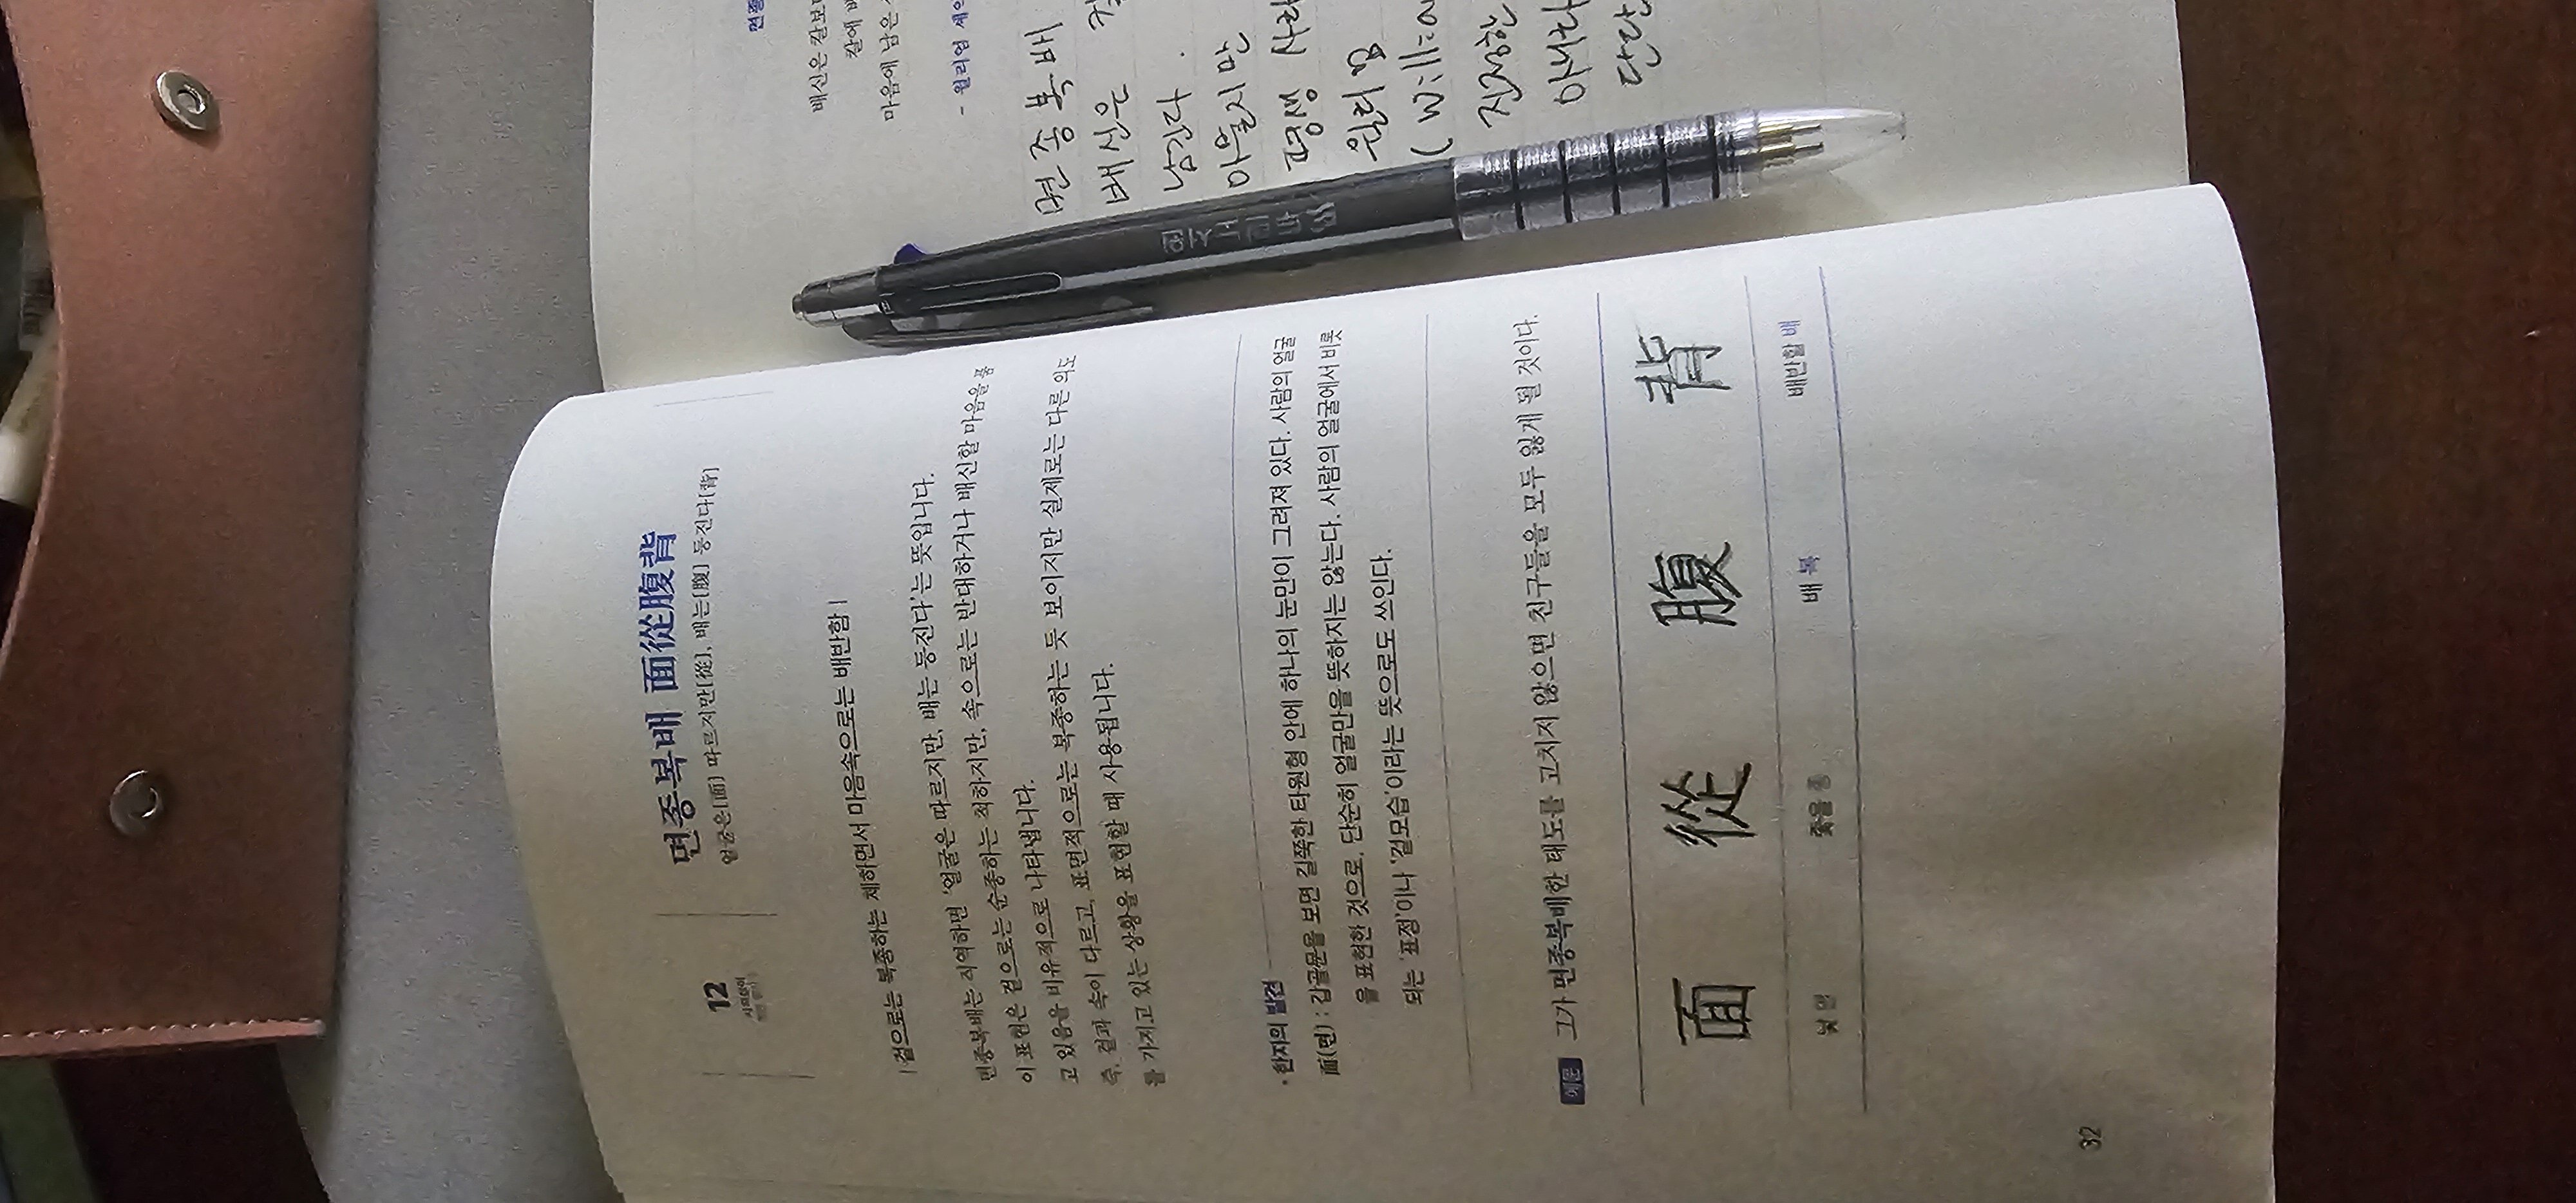 12
면종복배 面從腹背
얼굴은[面] 따르지만[從], 배는[腹] 등진다[背]
| 겉으로는 복종하는 체하면서 마음속으로는 배반함 |
면종복배는 직역하면 '얼굴은 따르지만, 배는 등진다'는 뜻입니다.
이 표현은 겉으로는 순종하는 척하지만, 속으로는 반대하거나 배신할 마음을 품
고 있음을 비유적으로 나타냅니다.
즉, 겉과 속이 다르고, 표면적으로는 복종하는 듯 보이지만 실제로는 다른 의도
를 가지고 있는 상황을 표현할 때 사용됩니다.
• 한자의 발견
面(면) : 갑골문을 보면 길쭉한 타원형 안에 하나의 눈만이 그려져 있다. 사람의 얼굴
을 표현한 것으로, 단순히 얼굴만을 뜻하지는 않는다. 사람의 얼굴에서 비롯
되는 '표정'이나 '겉모습'이라는 뜻으로도 쓰인다.
예문 그가 면종복배한 태도를 고치지 않으면 친구들을 모두 잃게 될 것이다.
面 從 腹 背
낯 면 좇을 종 배 복 배반할 배
32
면종
배신은 칼보다
칼에
마음에 남은
- 윌리엄
면종복배
배신은
남긴다.
아물지만
평생
윌리엄
진정한
아니라
단단